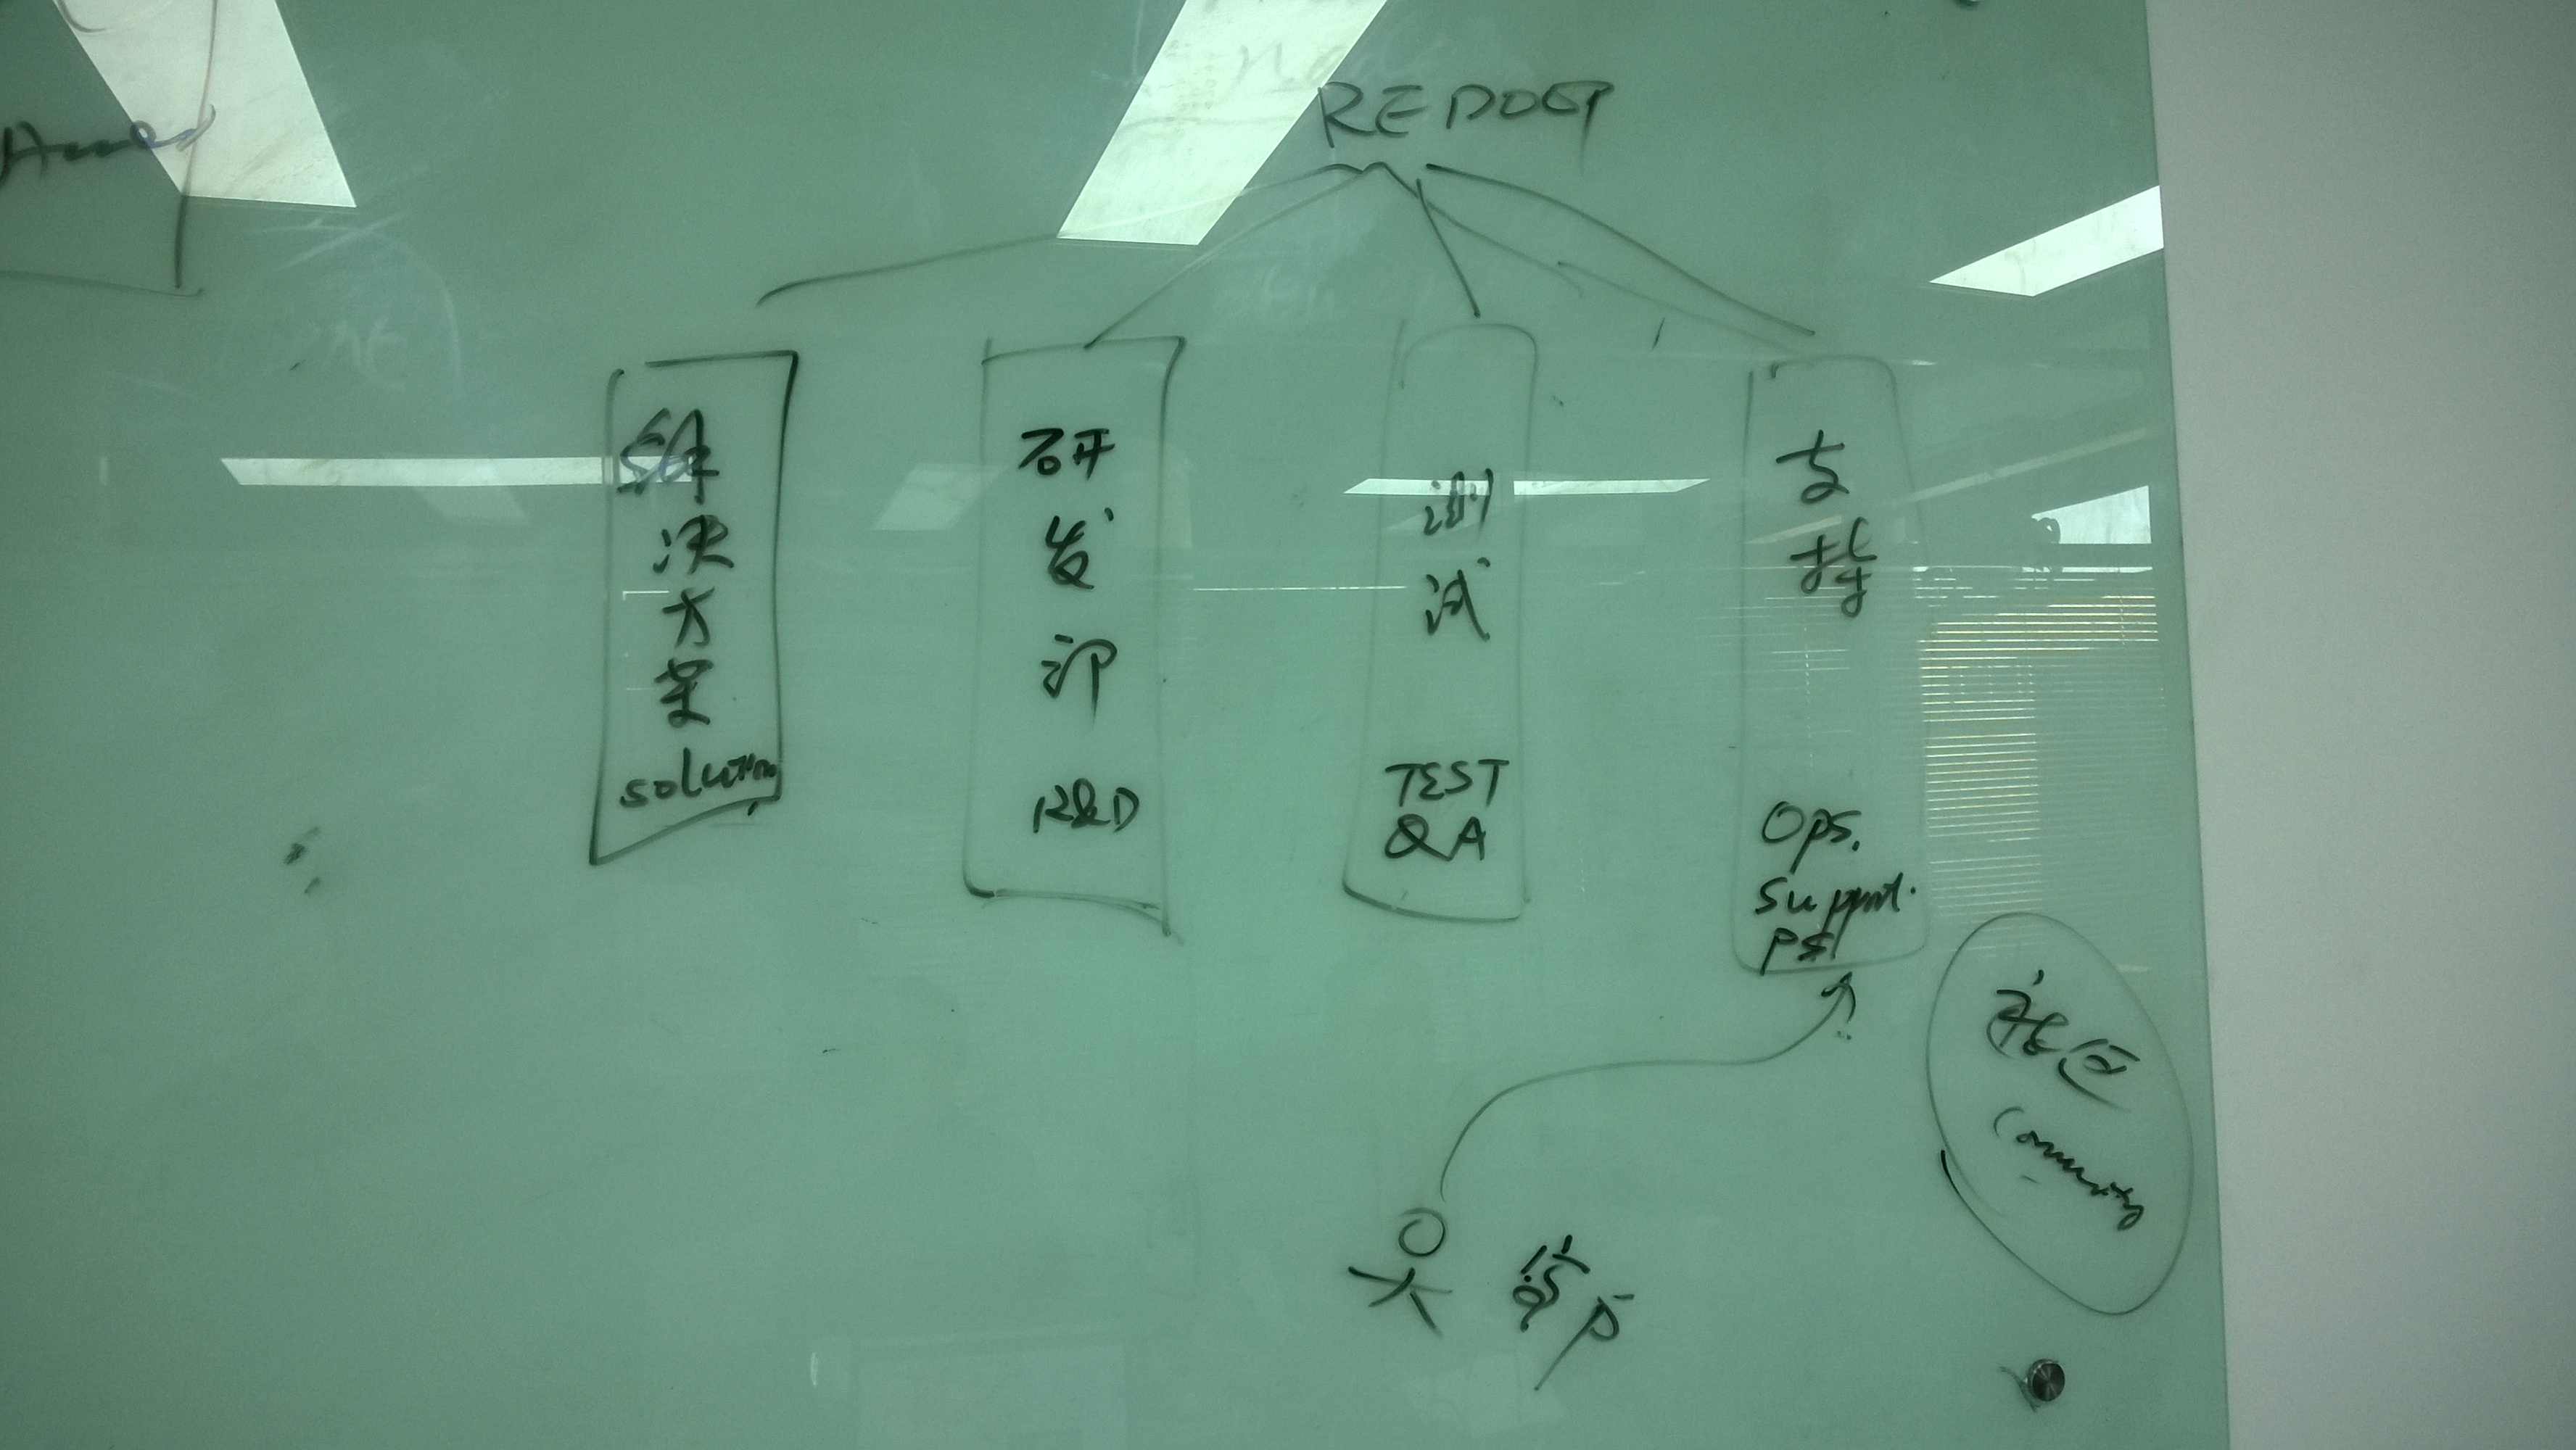 解决方案
solution
研发部
R&D
测试
TEST
QA
支持
Ops.
Support.
PS
社区
Community
客户